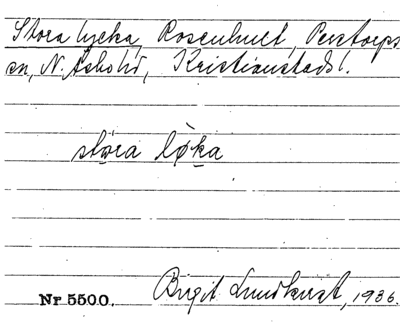 Stora lycka, Rosenhult, Perstorps
sn, N. Åsbo hd, Kristianstads l.
stora løka
Nr 5500. Birgit Lundkvist, 1936.